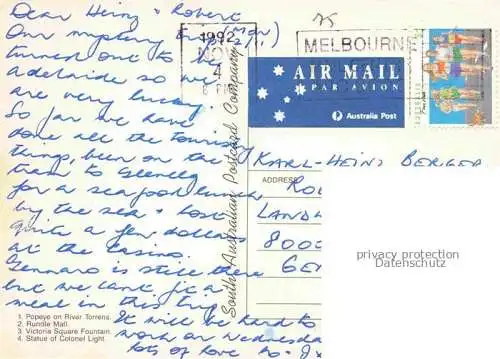 Dear Heinz & Robert
Our mystery trip (Mov!!)
turned out to be
adelaide so we
are very lucky.
So far we have
done all the touristy
things, been on the
tram to Glenelg
for a seafood lunch
by the sea & lost
quite a few dollars
at the Casino.
Gennaro is still there
but we cant fit a
meal in this trip
It will be hard to
work on Wednesday
lots of love
1. Popeye on River Torrens.
2. Rundle Mall.
3. Victoria Square Fountain.
4. Statue of Colonel Light.
South Australian Postcard Company
1992
NOV
4
MELBOURNE
AIR MAIL
PAR AVION
Australia Post
KARL-HEINZ BERGER
ADDRESS
LANDW
8000
GE
privacy protection
Datenschutz